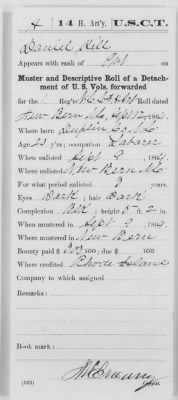 4 | 14 H. Art'y. | U.S.C.T.
Daniel Hill
Appears with rank of Pvt on
Muster and Descriptive Roll of a Detach-
ment of U. S. Vols. forwarded
for the 1 Reg't N.C. Roll dated
New Bern N.C., Sept 12, 1864.
Where born Duplin Co. N.C.
Age 23 y'rs; occupation Laborer
When enlisted Sept 9, 1864.
Where enlisted New Bern N.C.
For what period enlisted 3 years.
Eyes Dark; hair Dark
Complexion Blk; height 5 ft. 2 in.
When mustered in Sept 9, 1864.
Where mustered in New Bern
Bounty paid $ 100; due $ 100
Where credited Rhode Island
Company to which assigned
Remarks:
Book mark:
(339) Copyist.